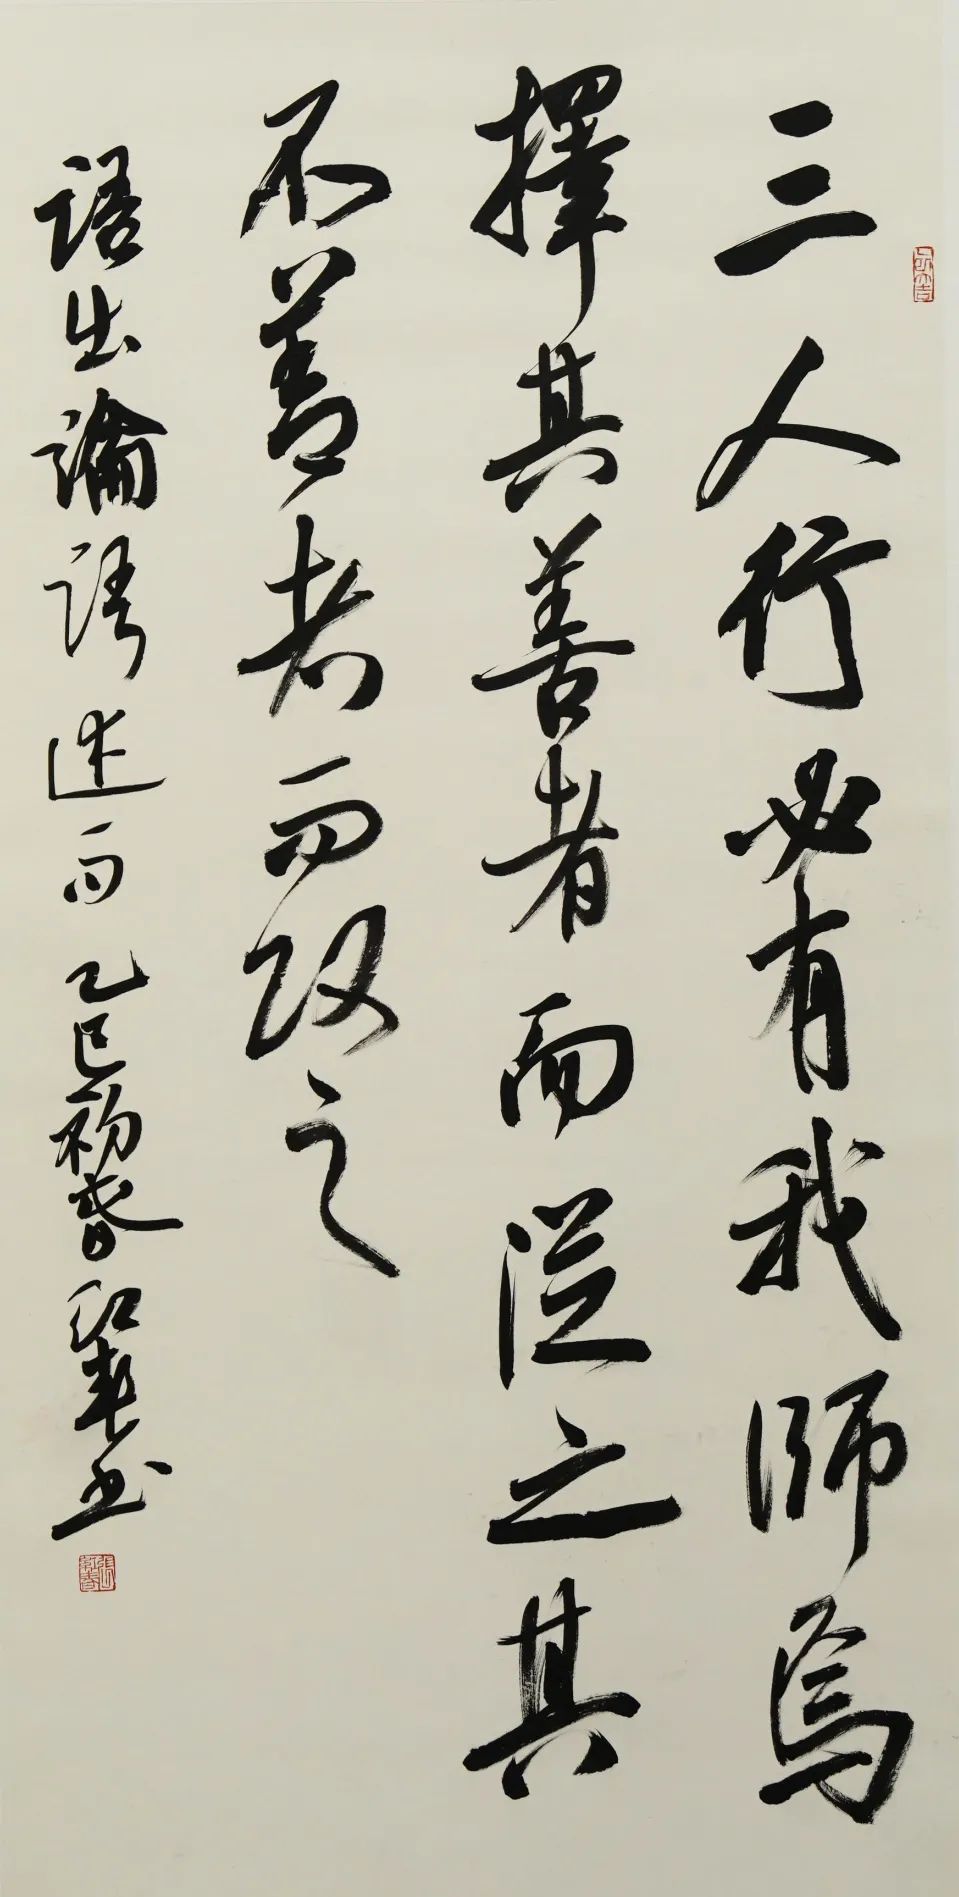 三人行必有我師焉
擇其善者而從之其
不善者而改之
語出論語述而乙巳初春紅春書